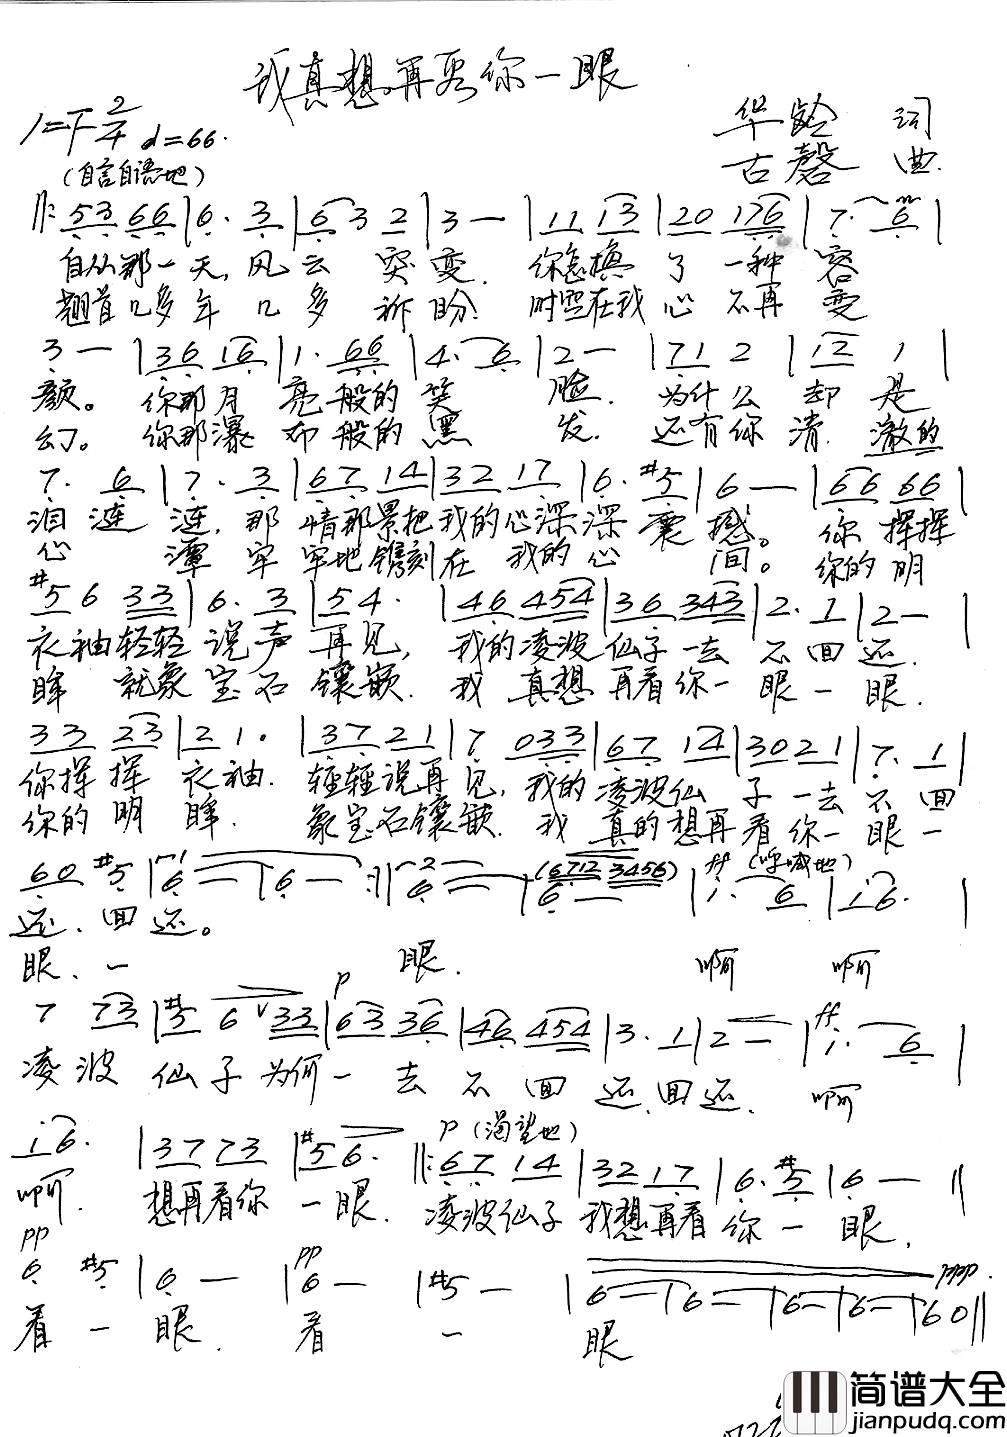 我真想再看你一眼
1=F 2/4 ♩=66.
华龄 词
古磬 曲
(自言自语地)
‖: 53 66 | 6. 3 | 6 3 2 | 3 — | 11 13 | 20 176 | 7. 6 |
自从那一天, 风云 突变. 你怎换 了 一种 容
翘首几多年 几多 祈盼. 时空在我 心 不再 变
3 — | 36 16 | 1. 66 | 4. 6 | 2 — | 71 2 | 12 1 |
颜。 你那月 亮般的笑 脸. 为什么 却是
幻。 你那瀑 布般的黑 发. 还有你 清.澈的
7. 6 | 7. 3 | 67 14 | 32 17 | 6. #5 | 6 — | 66 66 |
泪 涟 涟, 那 情那景把我的心深深 震 撼。 你 挥挥
心 潭 牢 牢地镌刻在 我的心 间。 你的 明
#5 6 33 | 6. 3 | 5 4. | 46 454 | 36 343 | 2. 1 | 2 — |
衣袖轻轻 说声 再见, 我的凌波 仙子一去 不回 还.
眸 就象 宝石 镶嵌. 我 真想 再看你一 眼一 眼.
33 23 | 2 1. | 37 21 | 7. 033 | 67 14 | 3021 | 7. 1 |
你挥 挥 衣袖. 轻轻说再 见, 我的凌波仙 子一去 不 回
你的 明 眸. 象宝石镶 嵌. 我 真的想再 看你一 眼一
60 #5 | 6 — | 6 — :‖ 6 — | 6 — (6712 3456) | ff (呼喊地) i. 6 | i 6. |
还、回 还。
眼、一 眼. 啊 啊
7 73 | #5 6 33 | p 63 36 | 46 454 | 3. 1 | 2 — | ff i. 6 |
凌波 仙子为何一 去 不 回 还、回还. 啊
i 6. | 3773 | #5 6. ‖: p (渴望地) 67 14 | 32 17 | 6. #5 | 6 — ‖
啊. 想再看你 一眼. 凌波仙子 我想再看 你 一 眼.
pp 6. #5 | 6 — | pp 6 — | #5 — | 6 — | 6 — | 6 — | 6 — | 60 ‖ ppp.
看 一 眼. 看 一 眼
简谱大全
jianpudq.com